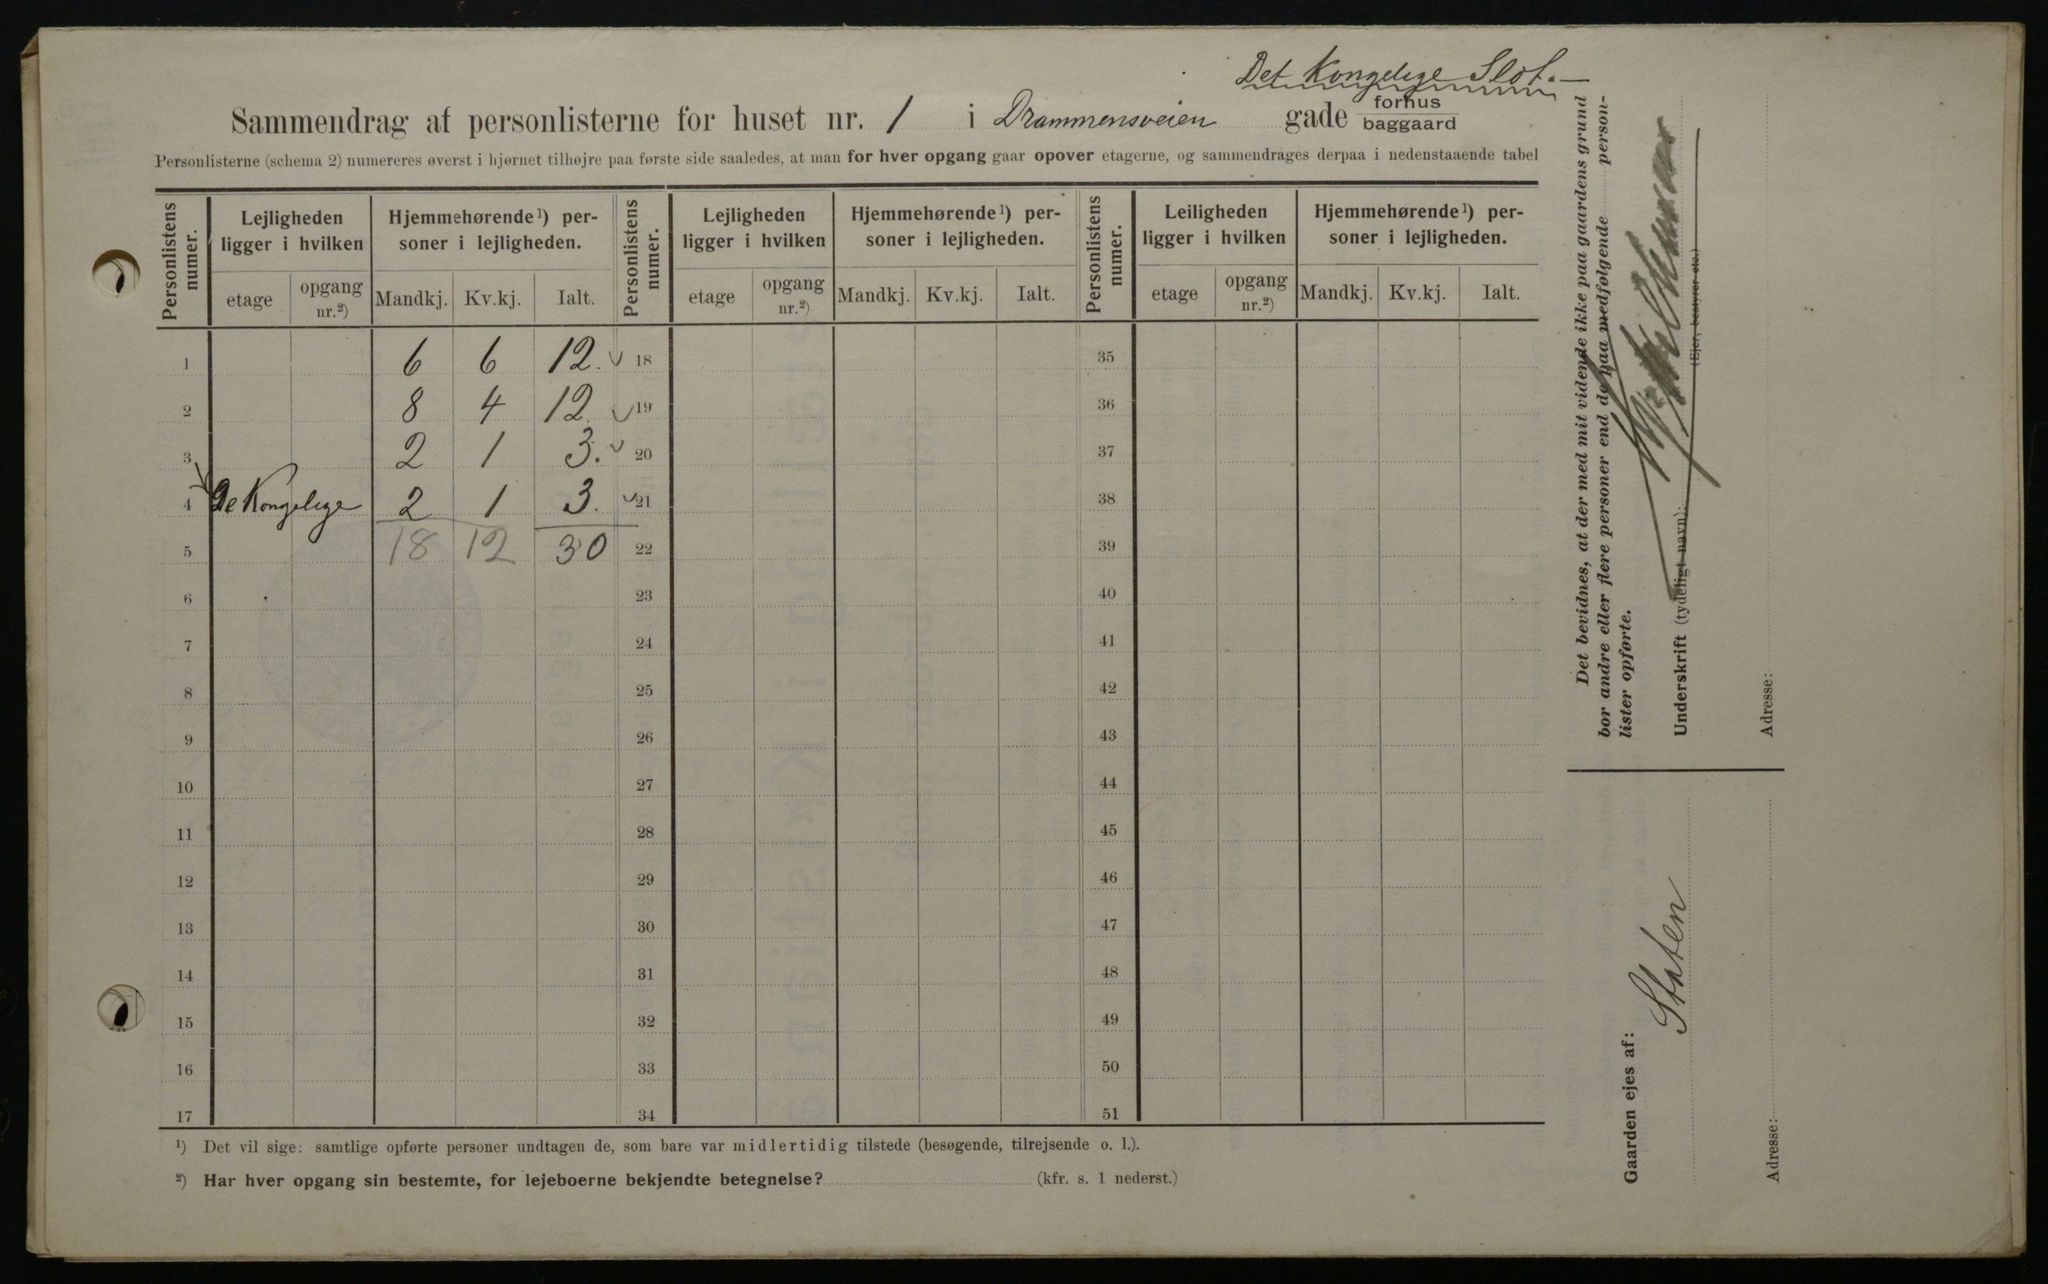 Det Kongelige Slot. —
Sammendrag af personlisterne for huset nr. 1 i Drammensveien gade forhus baggaard
Personlisterne (schema 2) numereres øverst i hjørnet tilhøjre paa første side saaledes, at man for hver opgang gaar opover etagerne, og sammendrages derpaa i nedenstaaende tabel
Personlistens numer. Lejligheden ligger i hvilken Hjemmehørende¹) personer i lejligheden. Personlistens numer. Lejligheden ligger i hvilken Hjemmehørende¹) personer i lejligheden. Personlistens numer. Leiligheden ligger i hvilken Hjemmehørende¹) personer i lejligheden.
etage opgang nr.²) Mandkj. Kv.kj. Ialt. etage opgang nr.²) Mandkj. Kv.kj. Ialt. etage opgang nr.²) Mandkj. Kv.kj. Ialt.
1 6 6 12. 18 35
2 8 4 12. 19 36
3 2 1 3. 20 37
4 De Kongelige 2 1 3. 21 38
5 18 12 30 22 39
6 23 40
7 24 41
8 25 42
9 26 43
10 27 44
11 28 45
12 29 46
13 30 47
14 31 48
15 32 49
16 33 50
17 34 51
¹) Det vil sige: samtlige opførte personer undtagen de, som bare var midlertidig tilstede (besøgende, tilrejsende o. l.).
²) Har hver opgang sin bestemte, for lejeboerne bekjendte betegnelse? (kfr. s. 1 nederst.)
Det bevidnes, at der med mit vidende ikke paa gaardens grund
bor andre eller flere personer end de paa medfølgende personlister opførte.
Underskrift (tydeligt navn):
(Ejer, bestyrer etc.)
Adresse:
Gaarden ejes af: Staten
Adresse: